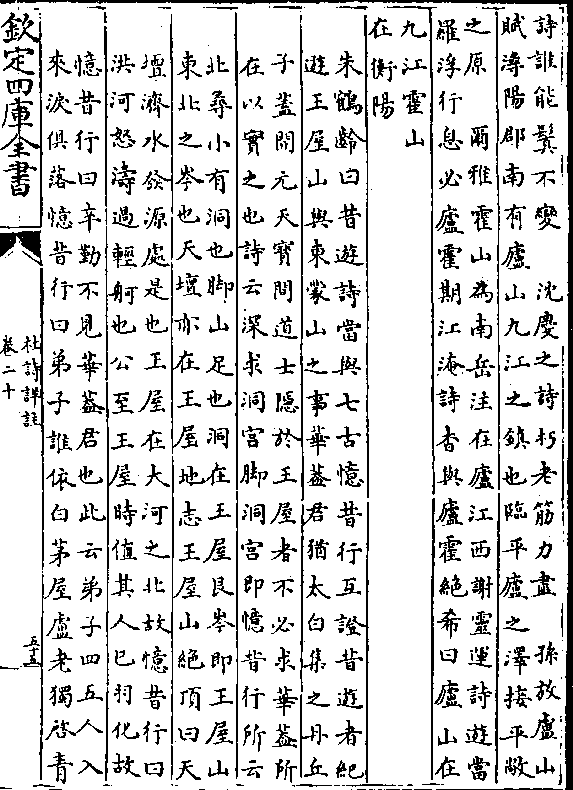 詩誰能鬂不變　沈慶之詩朽老筋力盡　孫放廬山
賦潯陽郡南有廬山九江之鎮也臨平廬之澤接平敞
之原　爾雅霍山為南岳注在廬江西謝靈運詩遊當
羅浮行息必廬霍期江淹詩杳與廬霍絶希曰廬山在
九江霍山
在衡陽
朱鶴齡曰昔遊詩當與七古憶昔行互證昔遊者紀
遊王屋山與東蒙山之事華葢君猶太白集之丹丘
子葢開元天寶間道士隱於王屋者不必求華葢所
在以實之也詩云深求洞宫脚洞宫即憶昔行所云
北尋小有洞也脚山足也洞在王屋艮岑即王屋山
東北之岑也天壇亦在王屋地志王屋山絶頂曰天
壇濟水發源處是也王屋在大河之北故憶昔行曰
洪河怒濤過輕舸也公至王屋時值其人已羽化故
憶昔行曰辛勤不見華葢君也此云弟子四五人入
來淚俱落憶昔行曰弟子誰依白茅屋盧老獨啓青
欽定四庫全書
杜詩詳註
卷二十
五十五